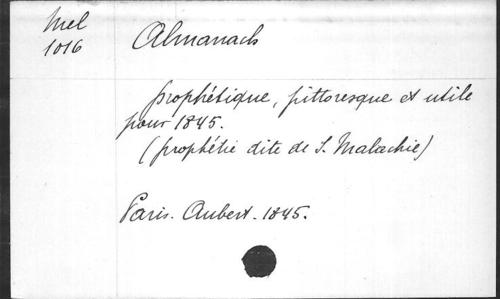 Mel
1016
Almanach
prophétique, pittoresque et utile
pour 1845.
(prophétie dite de S. Malachie)
Paris. Aubert. 1845.